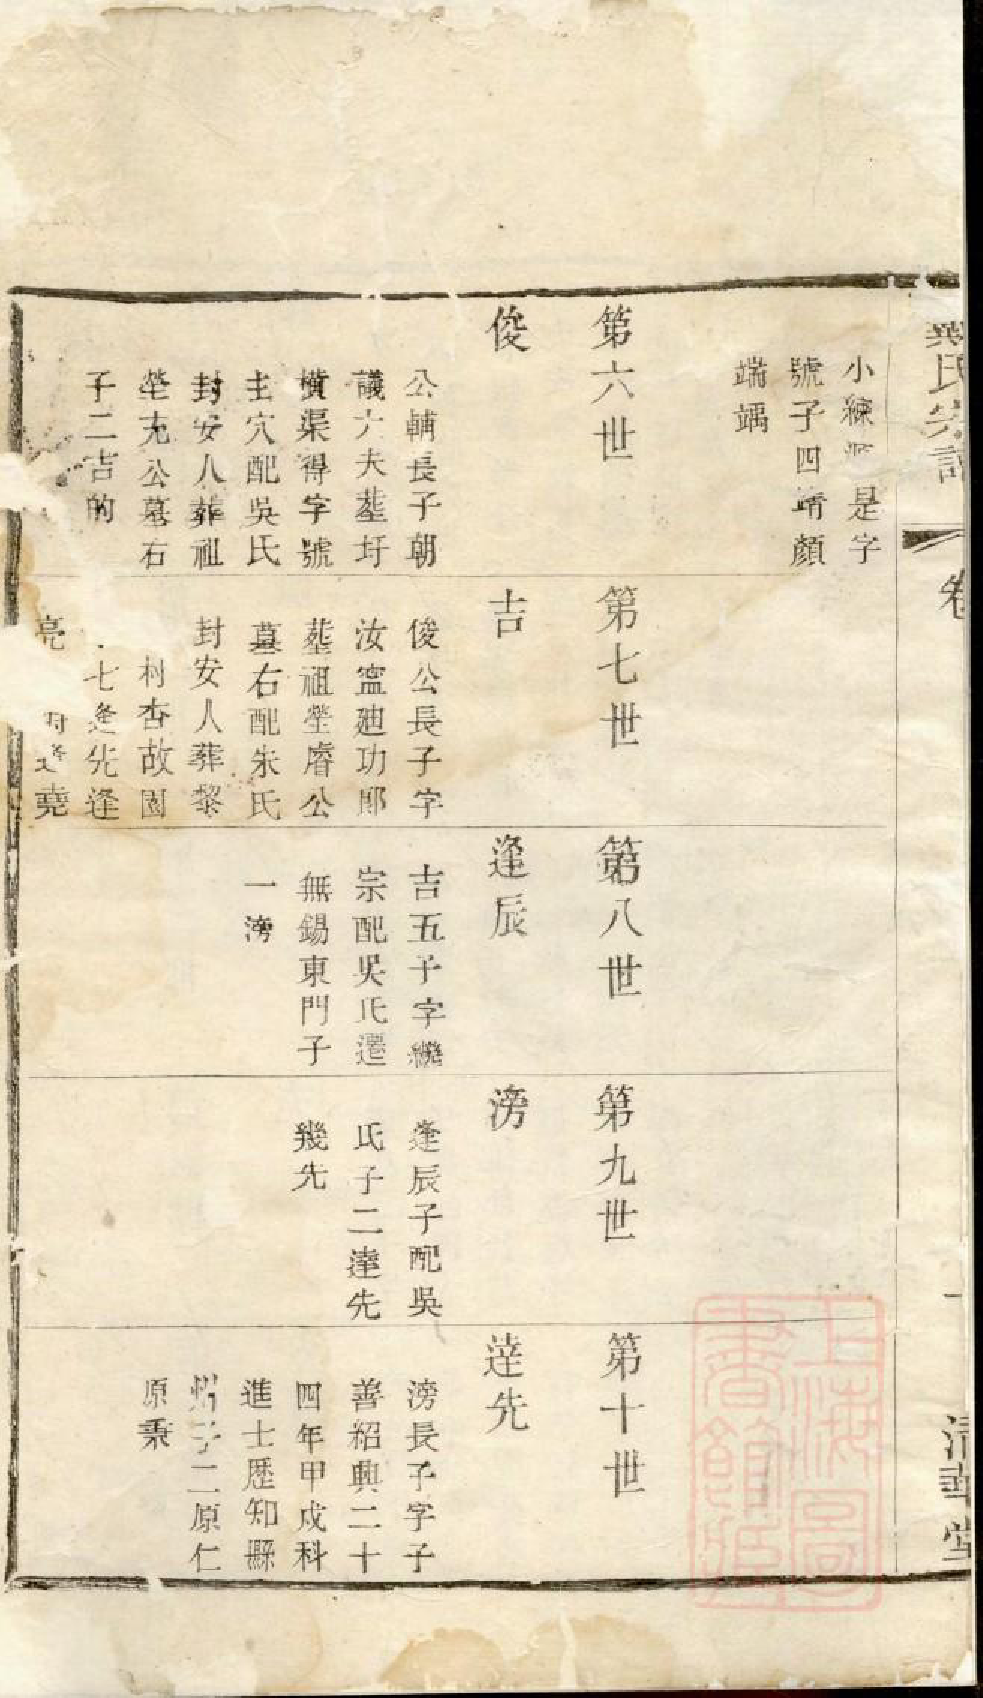 氏宗譜
卷
一
清華堂
小練
是字
號子四靖顏
端竬
第六世
俊
公輔長子朝
議六夫塟圩
橫渠得字號
主穴配吳氏
封安人葬祖
塋充公墓右
子二吉的
第七世
吉
俊公長子字
汝寧廸功郎
塟祖塋睿公
墓右配朱氏
封安人葬黎
村杏故園
七逢先逢
亮
堯
第八世
逢辰
吉五子字繼
宗配吳氏遷
無錫東門子
一滂
第九世
滂
逢辰子配吳
氏子二達先
幾先
第十世
達先
滂長子字子
善紹興二十
四年甲戌科
進士歷知縣
州子二原仁
原秉
上海圖
書館藏